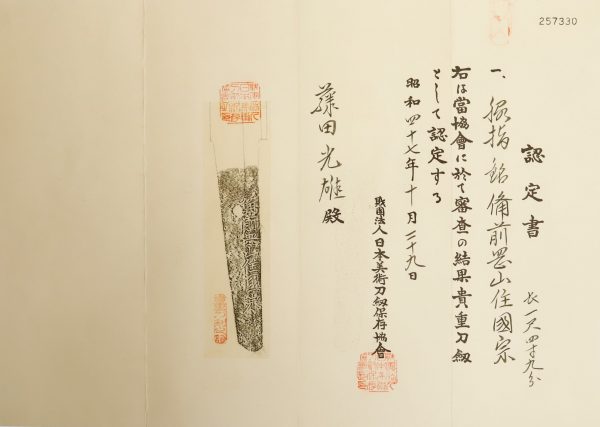 257330
認定書
一、脇指 銘 備前岡山住國宗
長一尺四寸九分
右は當協會に於て審査の結果貴重刀劔
として認定する
昭和四十七年十月二十九日
財團法人日本美術刀劔保存協會
藤田光雄殿